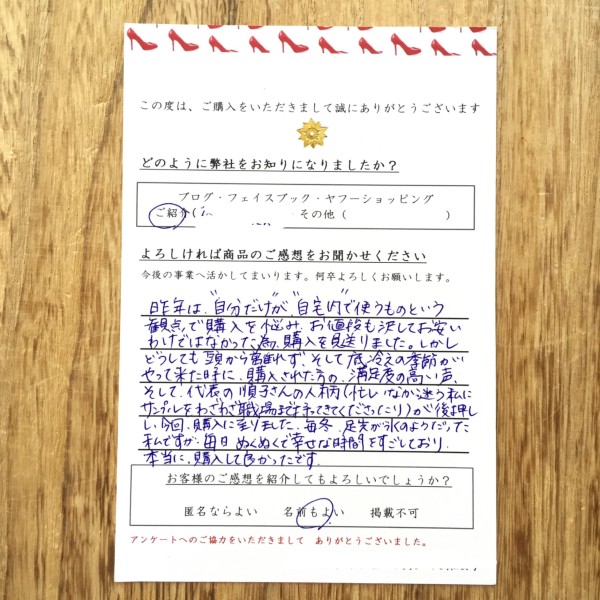 この度は、ご購入をいただきまして誠にありがとうございます
どのように弊社をお知りになりましたか？
ブログ・フェイスブック・ヤフーショッピング
ご紹介( ・その他 ( )
よろしければ商品のご感想をお聞かせください
今後の事業へ活かしてまいります。何卒よろしくお願いします。
昨年は、"自分だけ"が、"自宅内"で使うものという
観点で購入を悩み、お値段も決してお安い
わけではなかった為、購入を見送りました。しかし
どうしても頭から離れず、そして底冷えの季節が
やって来た時に、購入された方の、満足度の高い声、
そして、代表の順子さんの人柄(忙しいなか迷う私に
サンプルをわざわざ職場まで持ってきてくださったり)が後押し
し、今回、購入に至りました。毎冬、足先が氷のようだった
私ですが、毎日ぬくぬくで幸せな時間をすごしており、
本当に、購入して良かったです。
お客様のご感想を紹介してもよろしいでしょうか？
匿名ならよい 名前もよい 掲載不可
アンケートへのご協力をいただきまして ありがとうございました。